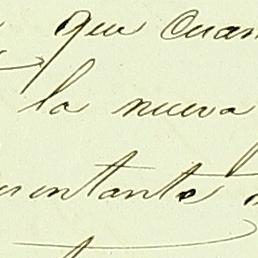 que cuan
la nueva
entante